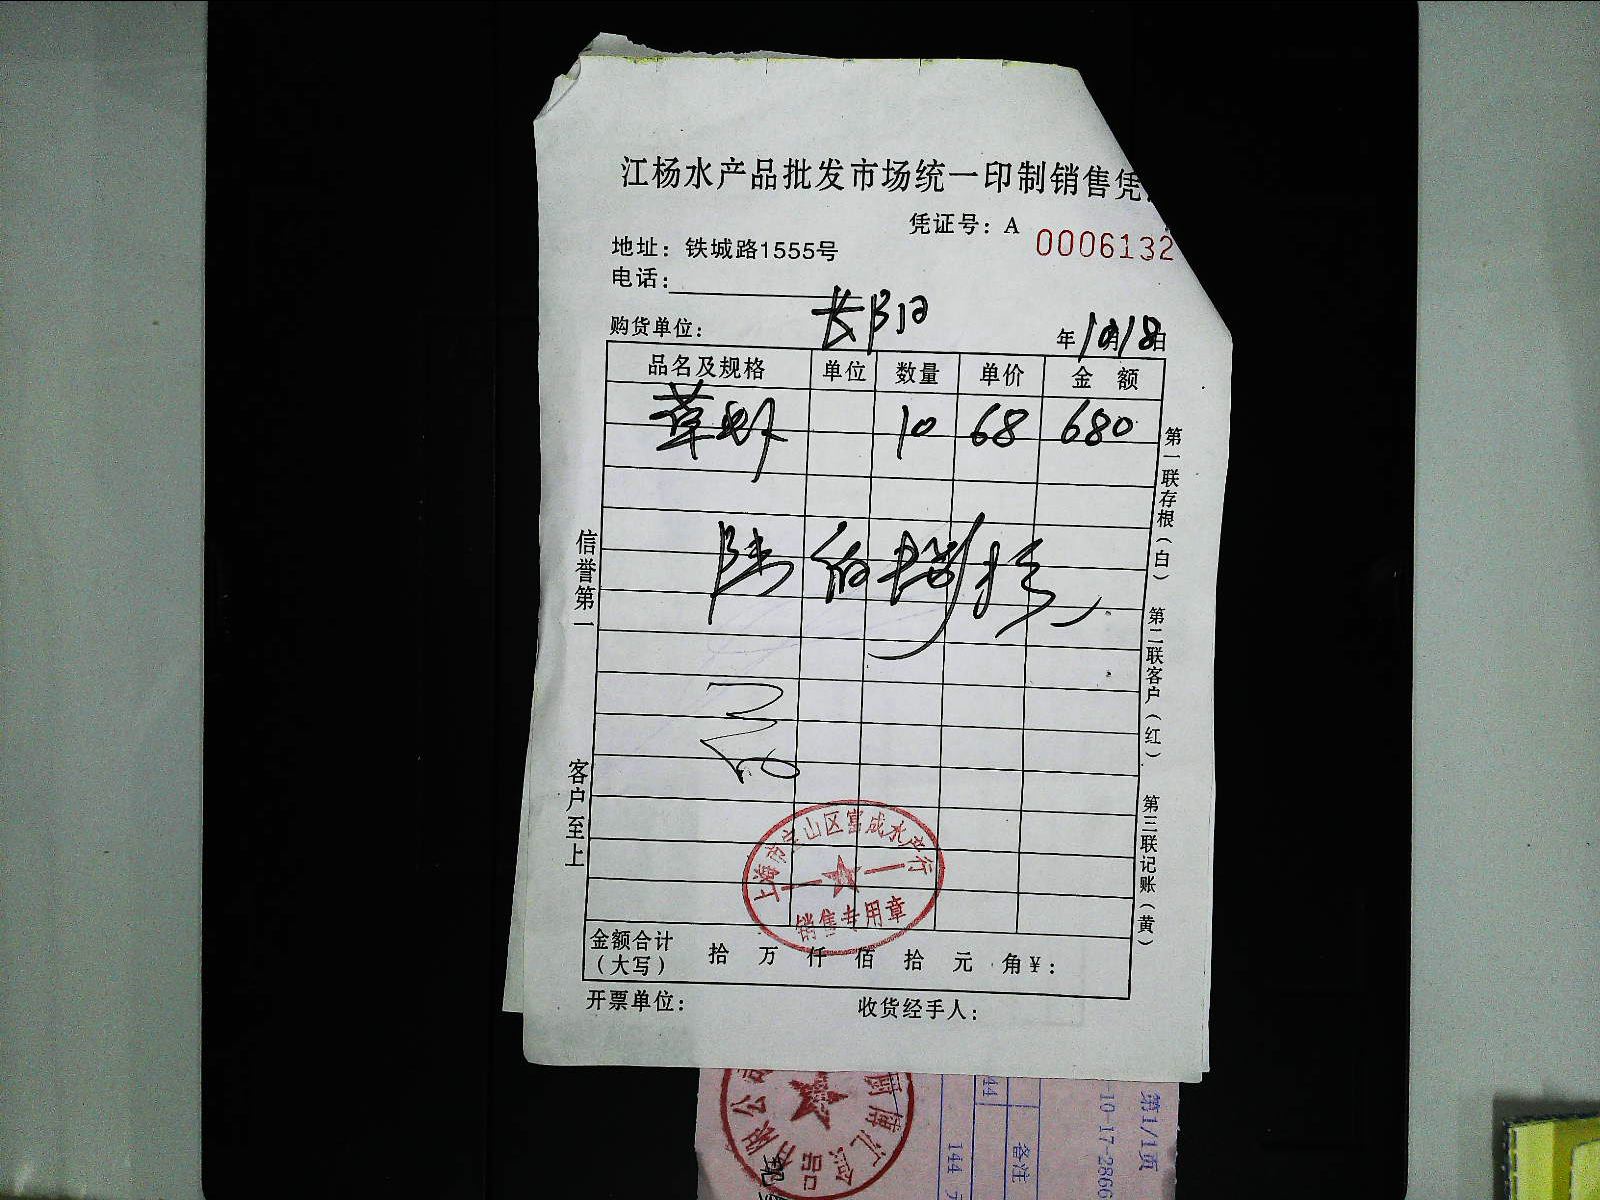 江杨水产品批发市场统一印制销售凭
凭证号：A 0006132
地址：铁城路1555号
电话：
购货单位： 长阳
年10月18日
品名及规格 单位 数量 单价 金 额
草虾 10 68 680
陆佰捌拾
信誉第一
客户至上
第一联存根（白） 第二联客户（红） 第三联记账（黄）
上海市宝山区富成水产行
销售专用章
金额合计（大写） 拾 万 仟 佰 拾 元 角¥：
开票单位： 收货经手人：
第1/1页
-10-17-2866
备注
144
44